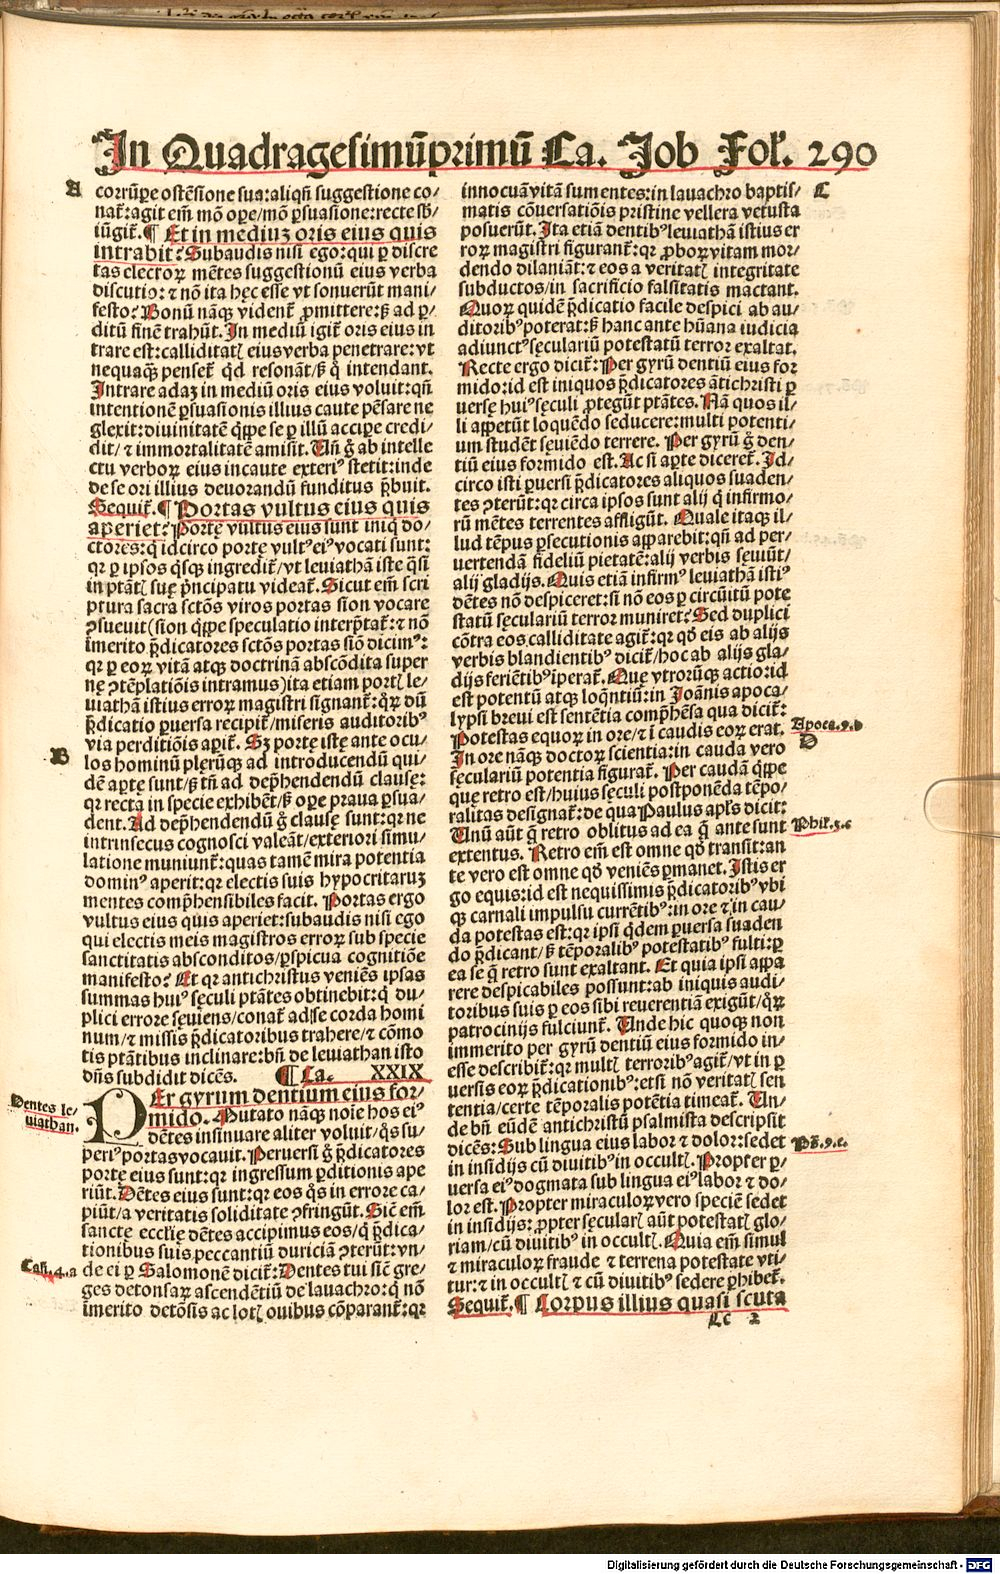 In Quadragesimūprimū Ca. Job Fol̄. 290
A
corrūpe ostēsione sua: aliqn̄ suggestione co-
nat̄: agit em̄ mō ope/mō ꝑsuasione: recte sb̄-
iūgit̄. ¶ Et in mediuꝫ oris eius quis
intrabit? Subaudis nisi ego: qui ꝑ discre
tas electoꝝ mētes suggestionū eius verba
discutio: ⁊ nō ita hęc esse vt sonuerūt mani/
festo? Bonū nāqꝫ vident̄ ꝓmittere: sꝫ ad ꝑ/
ditū finē trahūt. In mediū igit̄ oris eius in
trare est: calliditat̄ eius verba penetrare: vt
nequaqꝫ penset̄ qd̄ resonāt/sꝫ q̄ intendant.
Intrare adaꝫ in mediū oris eius voluit: qn̄
intentionē ꝑsuasionis illius caute pēsare ne
glexit: diuinitatē q̄ppe se ꝑ illū accipe credi/
dit/ ⁊ immortalitatē amisit. Un̄ g̊ ab intelle
ctu verboꝝ eius incaute exteriꝰ stetit: inde
de se ori illius deuorandū funditus p̄buit.
Sequit̄. ¶ Portas vultus eius quis
aperiet? Portę vultus eius sunt iniq̄ do/
ctores: q̄ idcirco portę vultꝰ eiꝰ vocati sunt:
qr ꝑ ipsos q̄sqꝫ ingredit̄/vt leuiathā iste q̄si
in ptāt̄ suę p̄ncipatu videat̄. Sicut em̄ scri
ptura sacra sctōs viros portas sion vocare
ꝯsueuit (sion q̄ppe speculatio interp̄tat̄: ⁊ nō
īmerito p̄dicatores sctōs portas siō dicimꝰ:
qr ꝑ eoꝝ vitā atqꝫ doctrinā abscōdita super
nę ꝯtēplatiōis intramus) ita etiam port̄ le/
uiathā istius erroꝝ magistri signant̄: q̄ꝝ dū
p̄dicatio ꝑuersa recipit̄/miseris auditoribꝰ
via perditiōis apit̄. Sꝫ portę istę ante ocu/
B
los hominū plęrūqꝫ ad introducendū qui/
dē aptę sunt/sꝫ tn̄ ad dep̄hendendū clausę:
qr recta in specie exhibēt/sꝫ ope praua ꝑsua/
dent. Ad dep̄hendendū g̊ clausę sunt: qr ne
intrinsecus cognosci valeāt/exteriori simu/
latione muniunt̄: quas tamē mira potentia
dominꝰ aperit: qr electis suis hypocritaruꝫ
mentes comp̄hensibiles facit. Portas ergo
vultus eius quis aperiet: subaudis nisi ego
qui electis meis magistros erroꝝ sub specie
sanctitatis absconditos/ꝑspicua cognitiōe
manifesto? Et qr antichristus veniēs ipsas
summas huiꝰ sęculi ptātes obtinebit: q̄ du/
plici errore sęuiens/conat̄ ad se corda homi
num/⁊ missis p̄dicatoribus trahere/⁊ cōmo
tis ptātibus inclinare: bn̄ de leuiathan isto
dn̄s subdidit dicēs. ¶ Ca. XXIX
Dentes le/
uiathan.
PEr gyrum dentium eius for/
mido. Mutato nāqꝫ noie hos eiꝰ
dētes insinuare aliter voluit/q̄s su/
periꝰ portas vocauit. Peruersi g̊ p̄dicatores
portę eius sunt: qr ingressum ꝑditionis ape
riūt. Dētes eius sunt: qr eos q̄s in errore ca/
piūt/a veritatis soliditate ꝯfringūt. Sic em̄
sanctę ecclię dētes accipimus eos/q̄ p̄dica/
tionibus suis peccantiū duriciā ꝯterūt: vn/
Cań. 4. a
de ei ꝑ Salomonē dicit̄: Dentes tui siē gre/
ges detonsaꝝ ascendētiū de lauachro: q̄ nō
īmerito detōsis ac lot̄ ouibus cōparant̄: qr
C
innocuā vitā sumentes: in lauachro baptis/
matis cōuersatiōis pristinę vellera vetusta
posuerūt. Ita etiā dentibꝰ leuiathā istius er
roꝝ magistri figurant̄: qr ꝓboꝝ vitam mor/
dendo dilaniāt: ⁊ eos a veritat̄ integritate
subductos/in sacrificio falsitatis mactant.
Quoꝝ quidē p̄dicatio facile despici ab au/
ditoribꝰ poterat: sꝫ hanc ante hūana iudicia
adiunctꝰ sęculariū potestatū terror exaltat.
Recte ergo dicit̄: Per gyrū dentiū eius for
mido: id est iniquos p̄dicatores ātichristi ꝑ
uersę huiꝰ sęculi ꝓtegūt ptātes. Nā quos il/
li appetūt loquēdo seducere: multi potenti/
um studēt sęuiēdo terrere. Per gyrū g̊ den/
tiū eius formido est. Ac si apte diceret̄. Id/
circo isti ꝑuersi p̄dicatores aliquos suaden/
tes ꝯterūt: qr circa ipsos sunt alij q̄ infirmo/
rū mētes terrentes affligūt. Quale itaqꝫ il/
lud tēpus ꝑsecutionis apparebit: qn̄ ad per/
uertendā fideliū pietatē: alij verbis sęuiūt/
alij gladijs. Quis etiā infirmꝰ leuiathā istiꝰ
dētes nō despiceret: si nō eos ꝑ circūitū pote
statū sęculariū terror muniret? Sed duplici
cōtra eos calliditate agit̄: qr qd̄ eis ab alijs
verbis blandientibꝰ dicit̄/hoc ab alijs gla/
dijs feriētibꝰ īperat̄. Quę vtrorūqꝫ actio: id
est potentū atqꝫ loq̄ntiū: in Joānis apoca/
lypsi breui est sentētia comp̄hēsa qua dicit̄:
Apoca. 9. b
Potestas equoꝝ in ore/⁊ ī caudis eoꝝ erat.
D
In ore nāqꝫ doctoꝝ scientia: in cauda vero
sęculariū potentia figurat̄. Per caudā q̄ppe
que retro est/huius sęculi postponēda tēpo/
ralitas designat̄: de qua Paulus apl̄s dicit:
Phil. 3. c
Unū aūt q̄ retro oblitus ad ea q̄ ante sunt
extentus. Retro em̄ est omne qd̄ transit: an
te vero est omne qd̄ veniēs ꝑmanet. Istis er
go equis: id est nequissimis p̄dicatoribꝰ vbi
qꝫ carnali impulsu currētibꝰ: in ore ⁊ in cau/
da potestas est: qr ipsi q̄dem ꝑuersa suaden
do p̄dicant/sꝫ tēporalibꝰ potestatibꝰ fulti: ꝑ
ea se q̄ retro sunt exaltant. Et quia ipsi appa
rere despicabiles possunt: ab iniquis audi/
toribus suis ꝑ eos sibi reuerentiā exigūt/q̄ꝝ
patrocinijs fulciunt̄. Unde hic quoqꝫ non
immerito per gyrū dentiū eius formido in/
esse describit̄: qr mult̄ terroribꝰ agit̄/vt in ꝑ
uersis eoꝝ p̄dicationibꝰ: etsi nō veritat̄ sen
tentia/certe tēporalis potētia timeat̄. Un/
de bn̄ eūdē antichristū psalmista descripsit
Ps̄. 9. c.
dicēs: Sub lingua eius labor ⁊ dolor: sedet
in insidijs cū diuitibꝰ in occult̄. Propter ꝑ/
uersa eiꝰ dogmata sub lingua eiꝰ labor ⁊ do/
lor est. Propter miraculoꝝ vero speciē sedet
in insidijs: ꝓpter sęcular̄ aūt potestat̄ glo/
riam/cū diuitibꝰ in occult̄. Quia em̄ simul
⁊ miraculoꝝ fraude ⁊ terrena potestate vti/
tur: ⁊ in occult̄ ⁊ cū diuitibꝰ sedere ꝑhibet̄.
Sequit̄. ¶ Corpus illius quasi scuta
CC 2
Digitalisierung gefördert durch die Deutsche Forschungsgemeinschaft - DFG